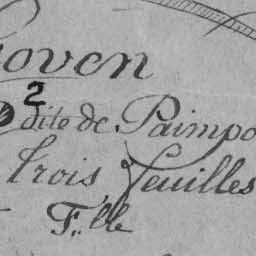 oven
2
dite de Paimpo
trois feuilles
F.lle